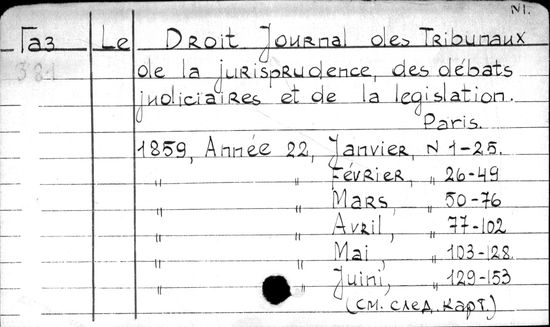 N1.
Газ Le Droit Journal des Tribunaux
381 de la jurisprudence, des débats
judiciaires et de la legislation.
Paris.
1859, Année 22, Janvier, N 1-25.
" " Février, " 26-49
" " Mars, " 50-76
" " Avril, " 77-102
" " Mai, " 103-128.
" " Juini, " 129-153
(см. след. карт.)